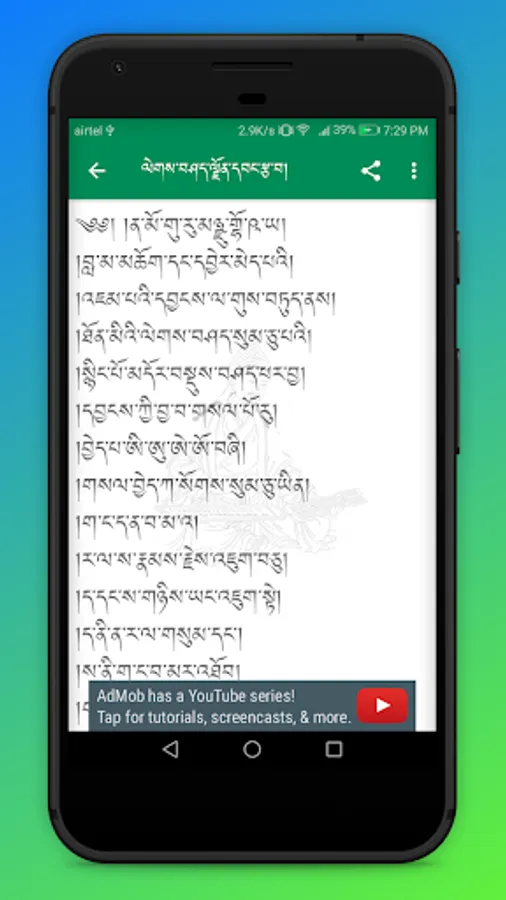 airtel 2.9K/s 39% 7:29 PM
ལེགས་བཤད་ལྗོན་དབང་རྩ་བ།
༄༅། །ན་མོ་གུ་རུ་མཉྫུ་གྷོ་ཥ་ཡ།
།བླ་མ་མཆོག་དང་དབྱེར་མེད་པའི།
།འཇམ་པའི་དབྱངས་ལ་གུས་བཏུད་ནས།
།ཐོན་མིའི་ལེགས་བཤད་སུམ་ཅུ་པའི།
།སྙིང་པོ་མདོར་བསྡུས་བཤད་པར་བྱ།
།དབྱངས་ཀྱི་བྱ་བ་གསལ་པོ་རུ།
།བྱེད་པ་ཨི་ཨུ་ཨེ་ཨོ་བཞི།
།གསལ་བྱེད་ཀ་སོགས་སུམ་ཅུ་ཡིན།
།ག་ང་ད་ན་བ་མ་འ།
།ར་ལ་ས་རྣམས་རྗེས་འཇུག་བཅུ།
།ད་དང་ས་གཉིས་ཡང་འཇུག་སྟེ།
།ད་ནི་ན་ར་ལ་གསུམ་དང་།
།ས་ནི་ག་ང་བ་མར་འཐོབ།
AdMob has a YouTube series!
Tap for tutorials, screencasts, & more.